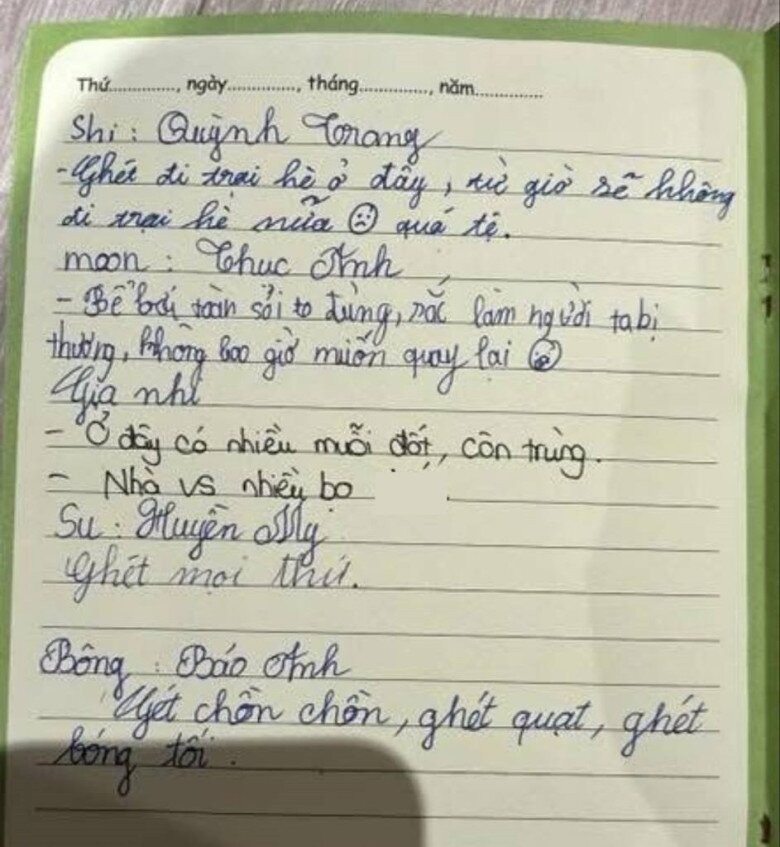 Thứ............., ngày............., tháng............., năm.............
Shi : Quỳnh Trang
- Ghét đi trại hè ở đây, từ giờ sẽ không
đi trại hè nữa ☹ quá tệ.
moon : Thục Anh
- Bể bơi toàn sỏi to đùng, rác làm người ta bị
thương, không bao giờ muốn quay lại
Gia nhi
- Ở đây có nhiều muỗi đốt, côn trùng.
- Nhà vs nhiều bo
Su : Huyền My
Ghét mọi thứ.
Bông : Bảo Anh
Gét chồn chồn, ghét quạt, ghét
bóng tối.